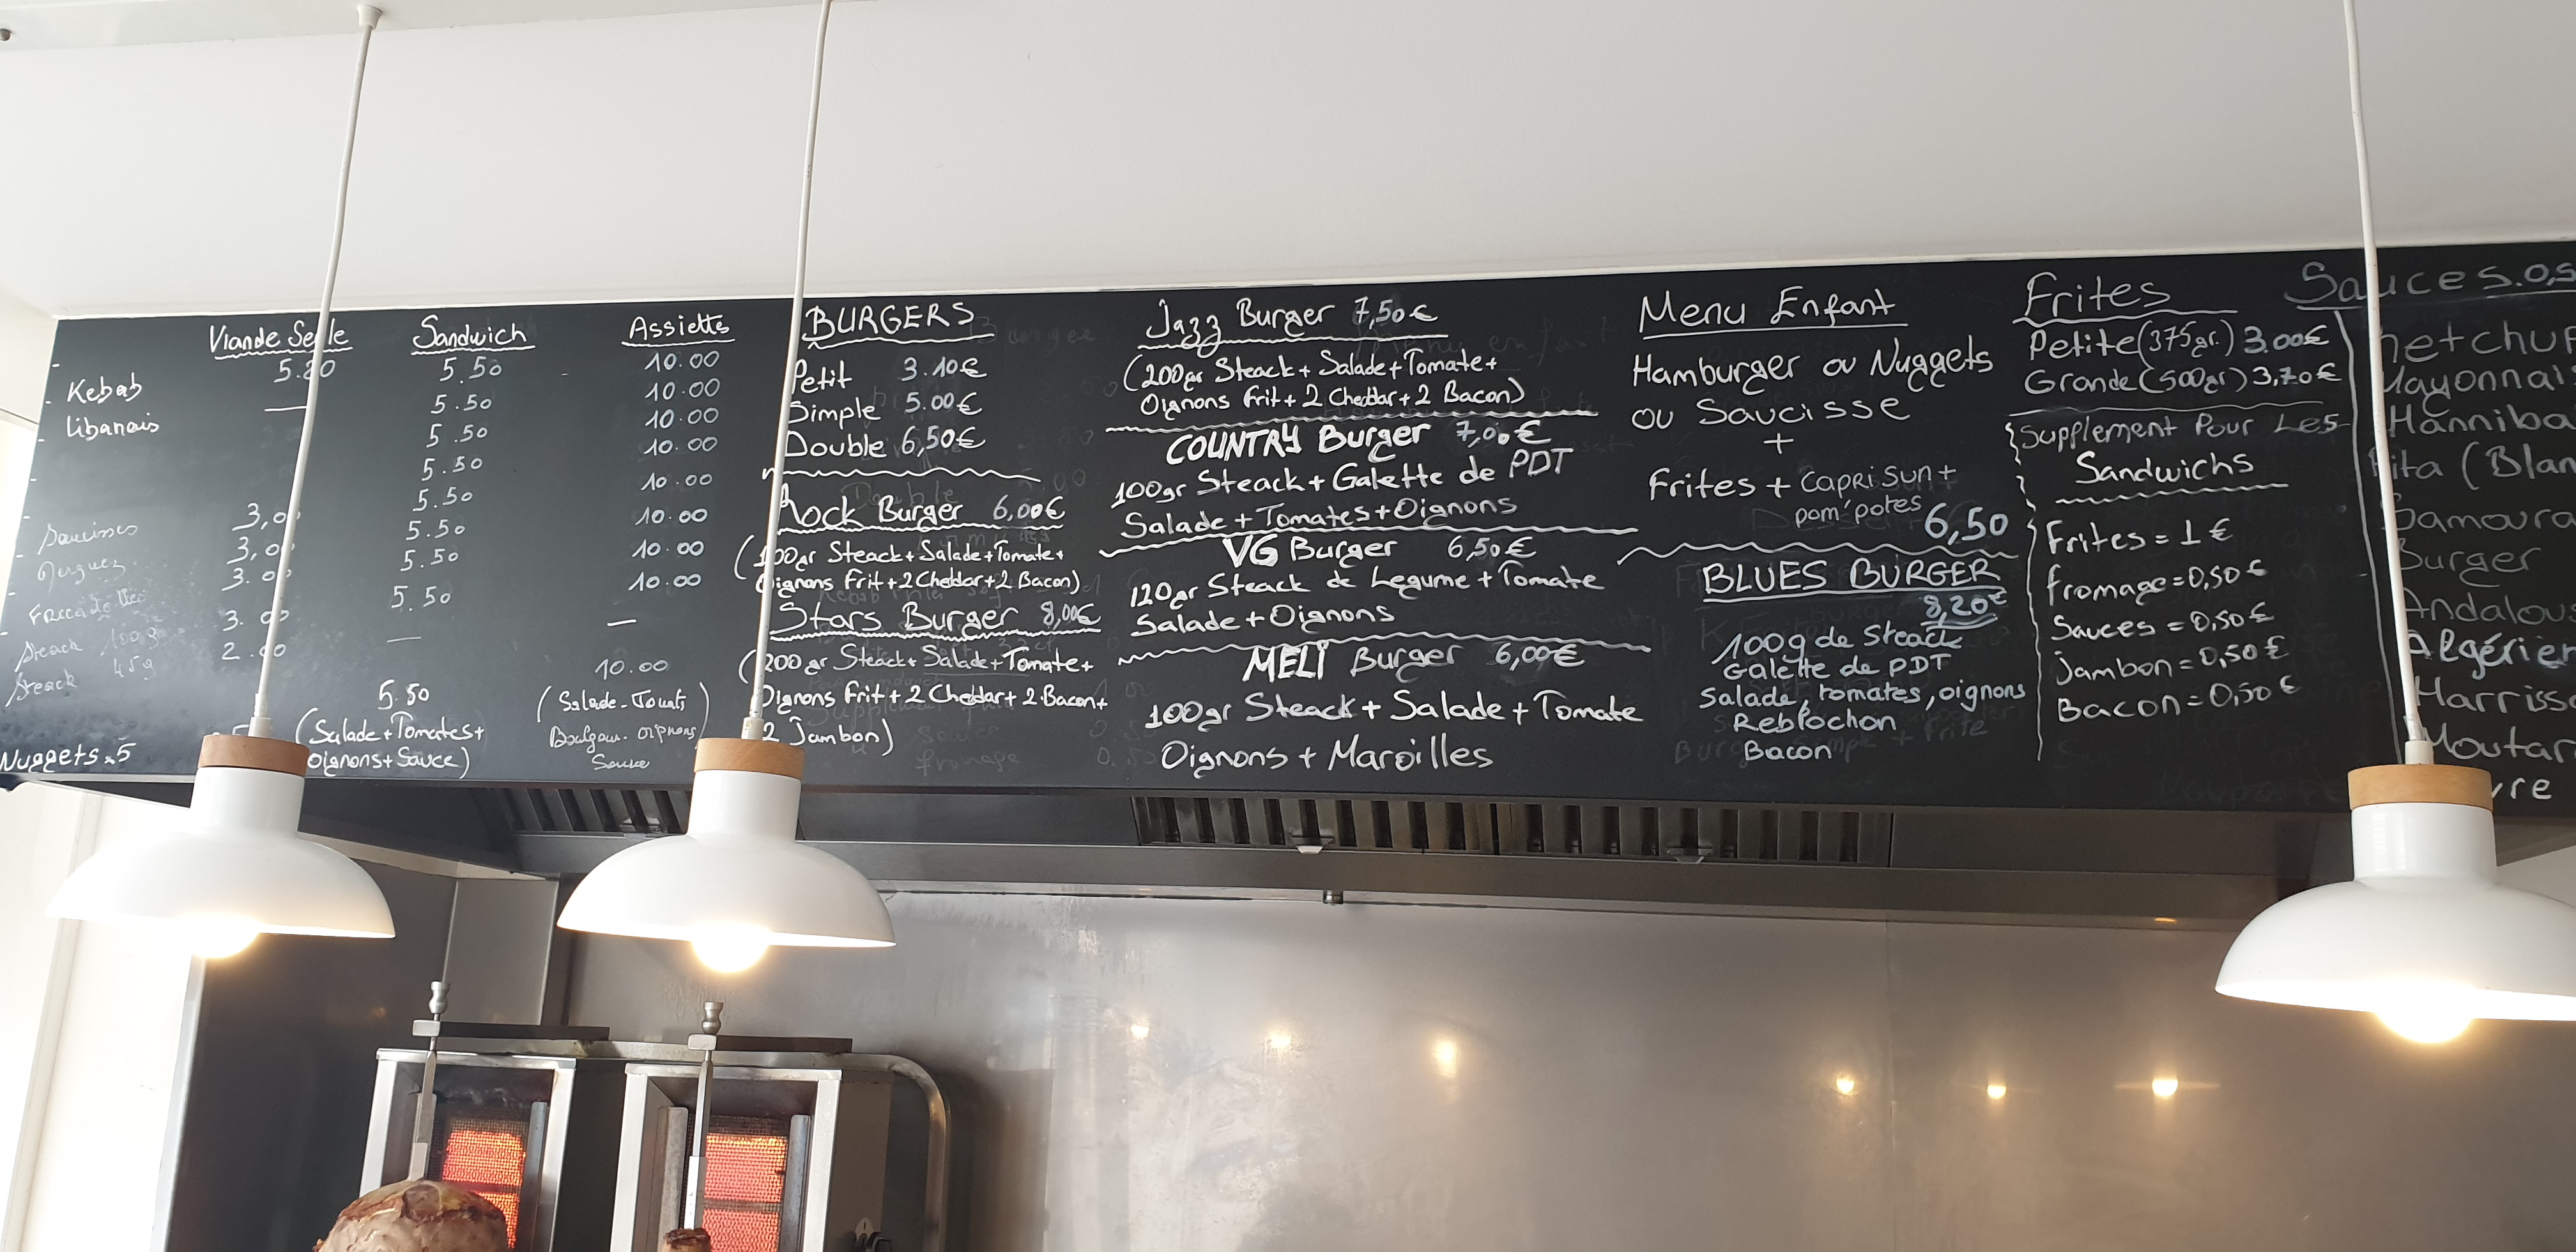 Viande Seule
5.20
3,0
3,0
3.00
3.00
2.00
Kebab
Libanais
Saucisses
Merguez
Steack 100g
Steack 45g
Nuggets x5
Sandwich
5.50
5.50
5.50
5.50
5.50
5.50
5.50
5.50
5.50
(Salade+Tomates+
oignons+Sauce)
Assiette
10.00
10.00
10.00
10.00
10.00
10.00
10.00
10.00
10.00
(Salade-Tomate
Boulgour-oignons)
Sauce
BURGERS
Petit 3.10€
Simple 5.00€
Double 6,50€
Rock Burger 6,00€
(100gr Steack+Salade+Tomate+
Oignons Frit+2 Cheddar+2 Bacon)
Stars Burger 8,00€
(200gr Steack+Salade+Tomate+
Oignons Frit+2 Cheddar+2 Bacon+
2 Jambon)
Jazz Burger 7,50€
(200gr Steack+Salade+Tomate+
Oignons Frit+2 Cheddar+2 Bacon)
COUNTRY Burger 7,00€
100gr Steack+Galette de PDT
Salade+Tomates+Oignons
VG Burger 6,50€
120gr Steack de Legume+Tomate
Salade+Oignons
MELI Burger 6,00€
100gr Steack+Salade+Tomate
Oignons+Maroilles
Menu Enfant
Hamburger ou Nuggets
ou Saucisse
+
Frites + Capri Sun+
pom'potes
6,50
BLUES BURGER
8,20€
100g de Steack
Galette de PDT
Salade, tomates, oignons
Reblochon
Bacon
Frites
Petite (375gr.) 3.00€
Grande (500gr) 3,70€
Supplement Pour Les
Sandwichs
Frites = 1€
fromage = 0,50€
Sauces = 0,50€
Jambon = 0,50€
Bacon = 0,50€
Sauces 0,5
ketchup
Mayonnais
Hanniba
Pita (Blan
Samoura
Burger
Andalous
Algérien
Harriss
Moutar